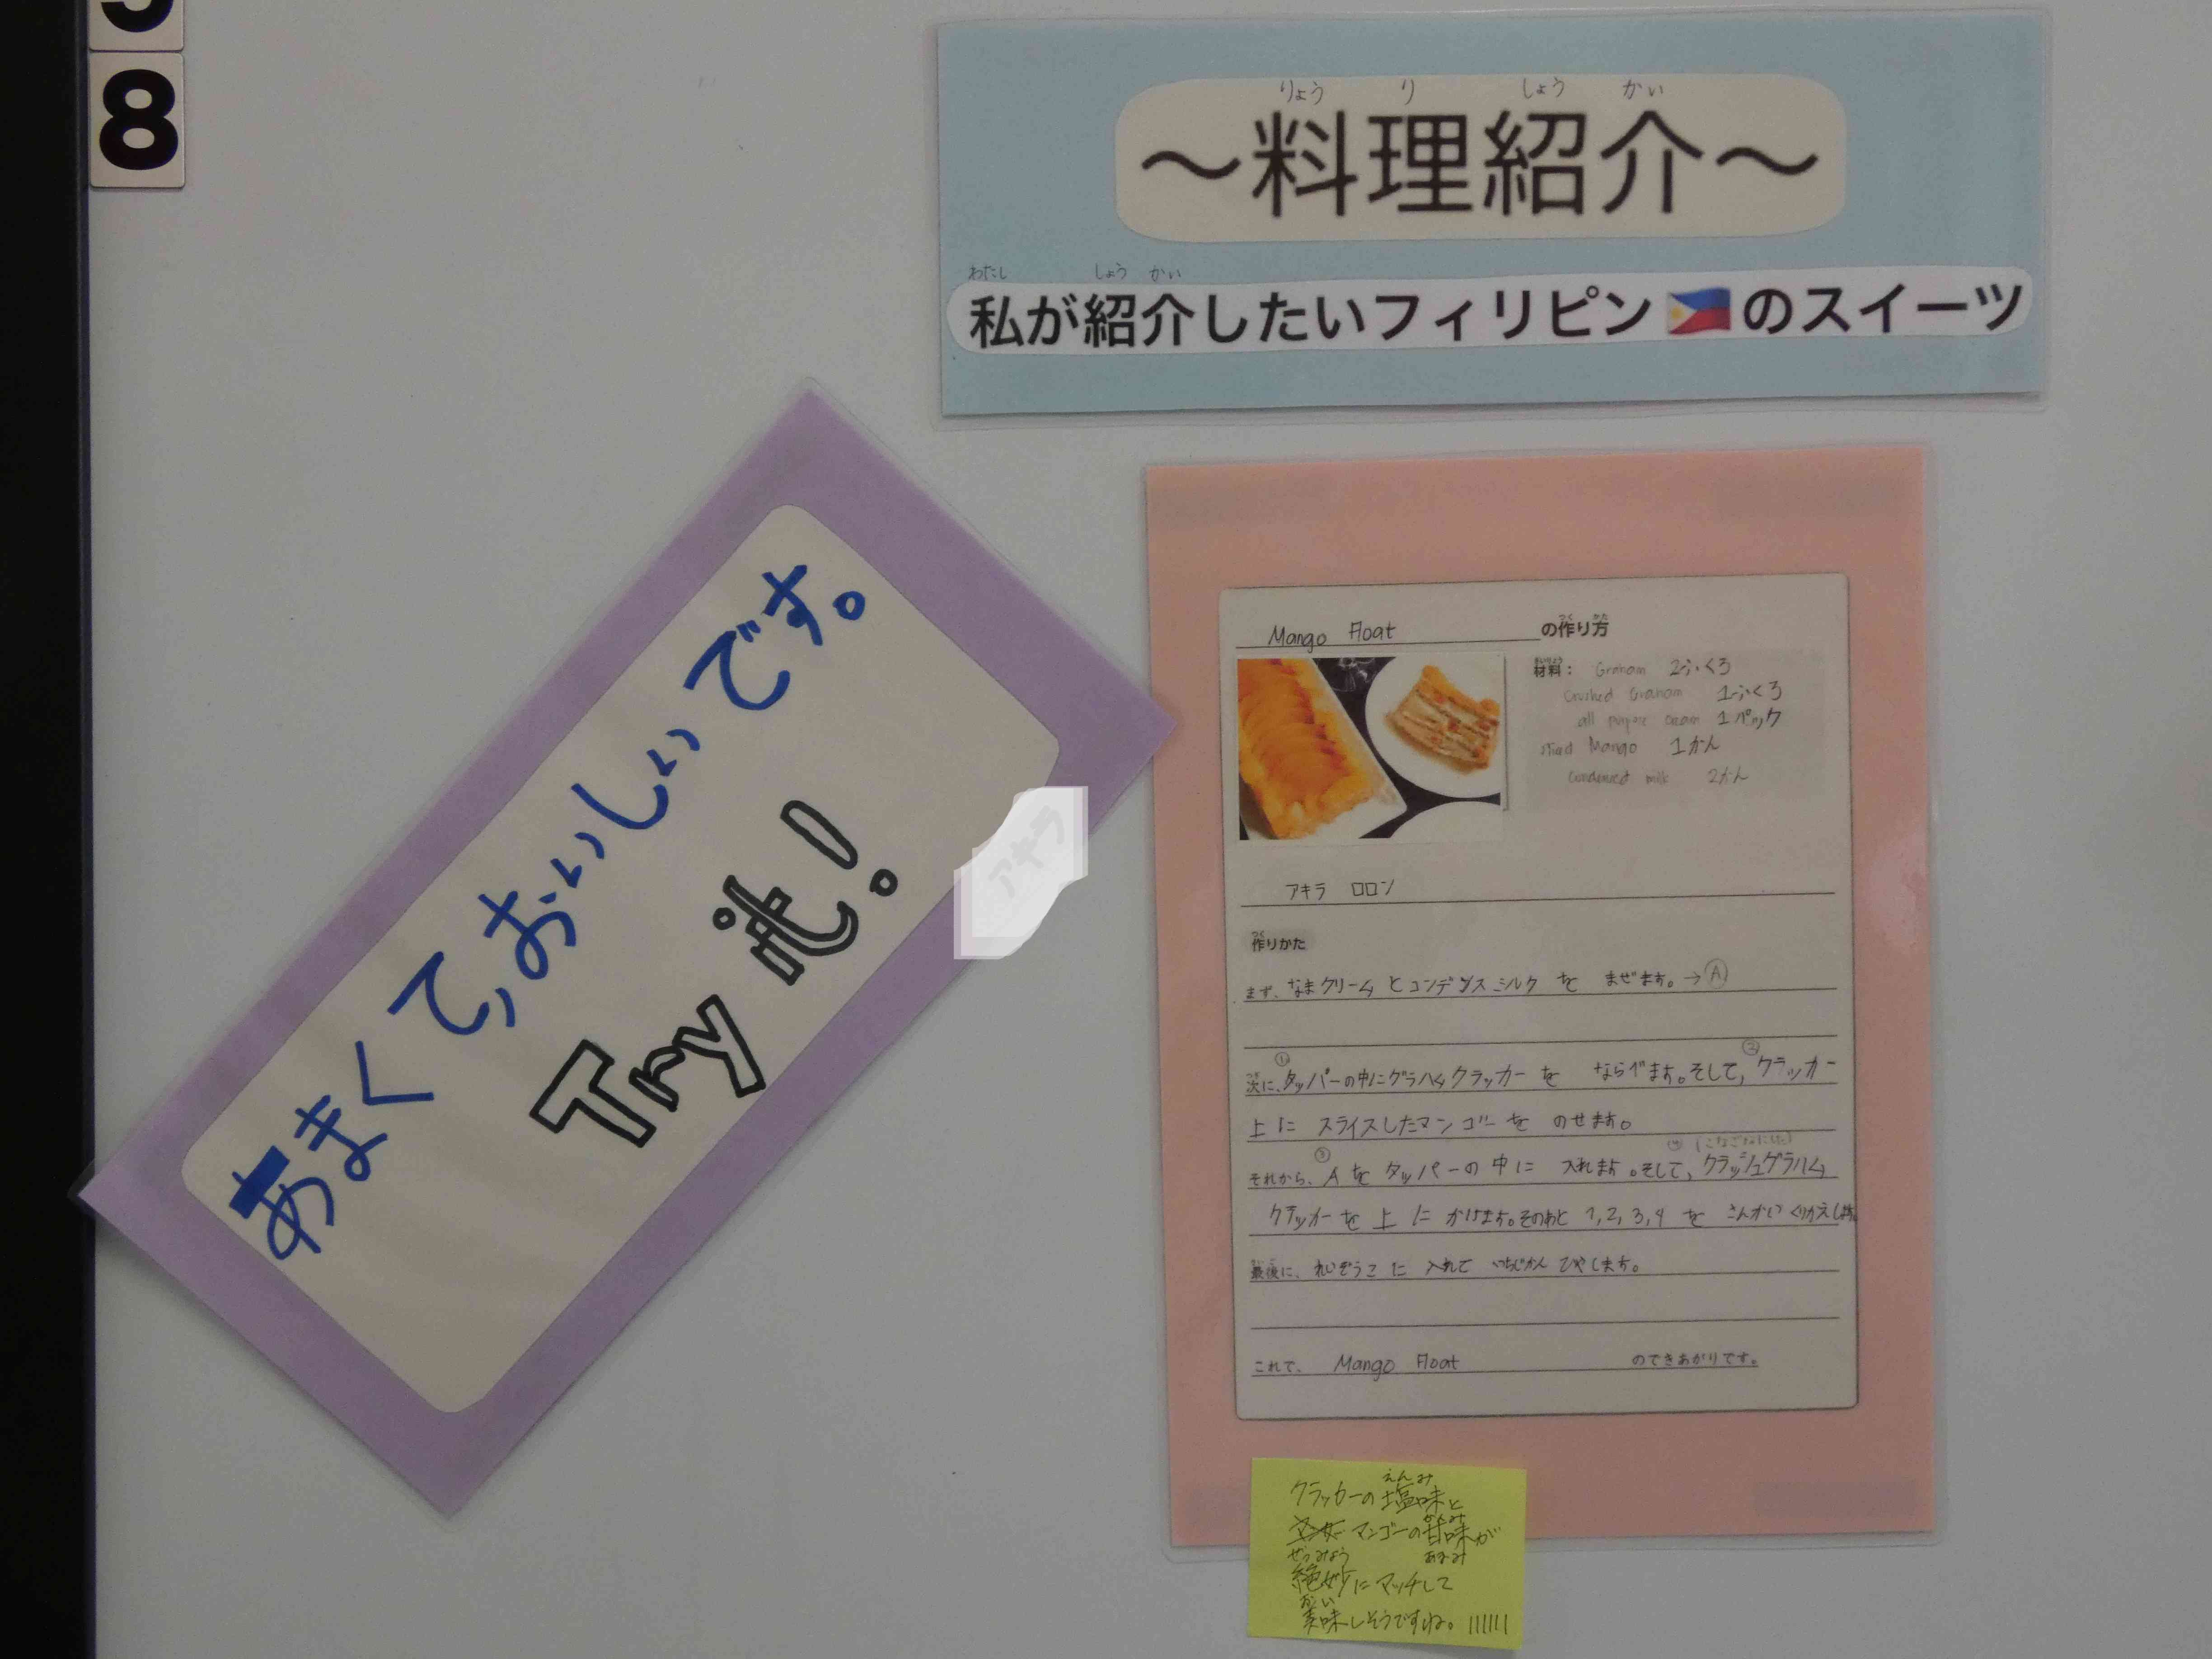 8
りょう り しょう かい
～料理紹介～
わたし しょう かい
私が紹介したいフィリピン🇵🇭のスイーツ
あまくて,おいしいです。
Try it!
アキラ
つく かた
Mango Float の作り方
ざいりょう
材料: Graham 2ふくろ
Crushed Graham 1ふくろ
all purpose cream 1パック
sliced Mango 1かん
condensed milk 2かん
アキラ ロロン
つく
作りかた
まず、なまクリームとコンデンスミルクを まぜます。→Ⓐ
① ②
つぎ
次に、タッパーの中にグラハムクラッカーを ならべます。そして,クラッカー
上に スライスしたマンゴーを のせます。
③ ④ (こなごなにした)
それから、Aをタッパーの中に 入れます。そして,クラッシュグラハム
クラッカーを上に かけます。そのあと 1,2,3,4を さんかいくりかえします。
さいご
最後に、れいぞうこに 入れて いちじかん ひやします。
これで、 Mango Float のできあがりです。
えんみ
クラッカーの塩味と
かんみ
マンゴーの甘味が
ぜつみょう あまみ
絶妙にマッチして
おい
美味しそうですね。!!!!!!